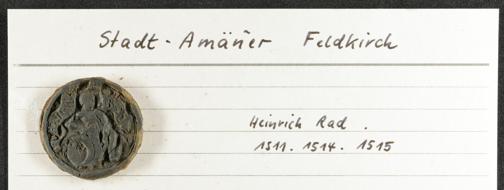 Stadt-Amäñer Feldkirch
Heinrich Rad.
1511. 1514. 1515